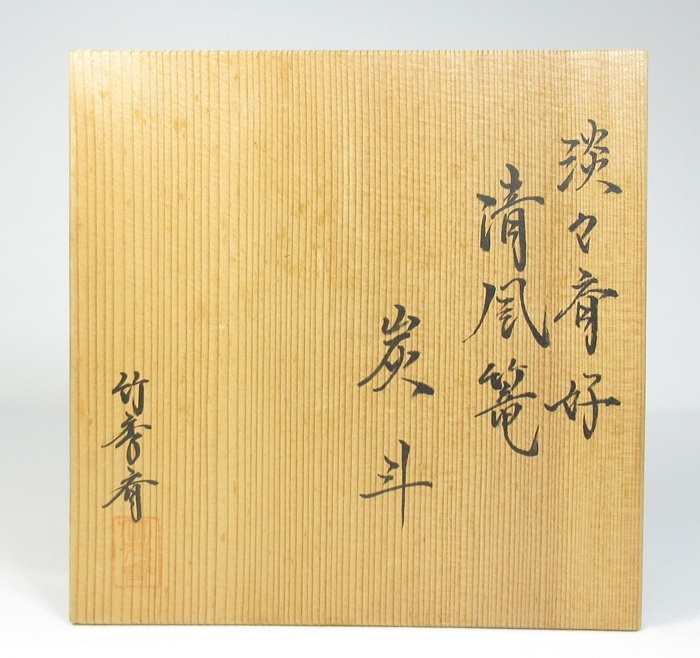 淡々斎好
清風篭
炭斗
竹斎